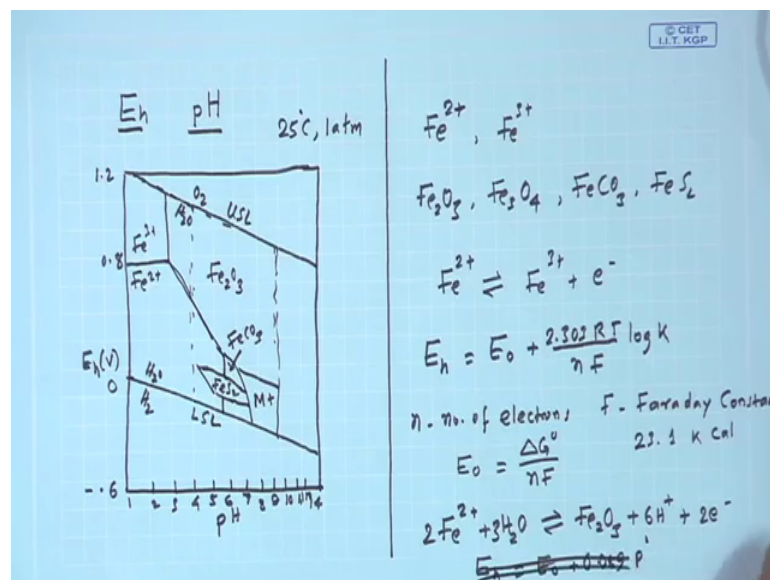 © CET
I.I.T. KGP
Eh pH 25°C, 1atm
1.2
O2
H2O
USL
Fe3+
0.8
Fe2+
Fe2O3
FeCO3
Eh(V)
0
H2O
H2
FeS2
M+
LSL
-.6
1 2 3 4 5 6 7 8 9 10
pH
Fe2+, Fe3+
Fe2O3, Fe3O4, FeCO3, FeS2
Fe2+ ⇌ Fe3+ + e-
Eh = E0 + 2.303 RT/nF log K
n - no. of electrons F - Faraday Consta
23.1 k Cal
E0 = ΔG°/nF
2Fe2+ + 3H2O ⇌ Fe2O3 + 6H+ + 2e-
Eh = E0 + 0.059 P